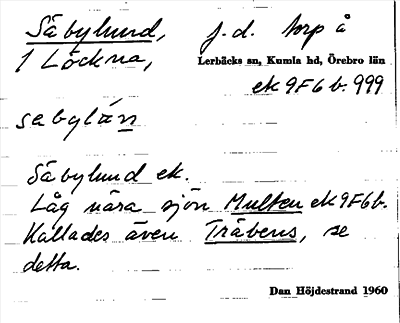 Säbylund, f.d. torp å
1 Löckna, Lerbäcks sn, Kumla hd, Örebro län
ek 9F6b. 999
sabylán
Säbylund ek.
Låg nära sjön Multen ek 9F6b.
Kallades även Träbens, se
detta.
Dan Höjdestrand 1960